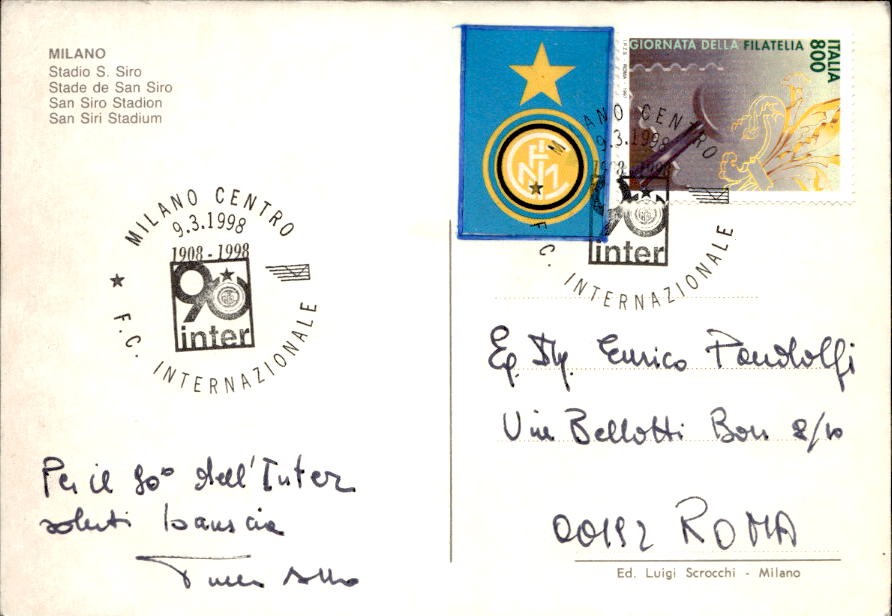 MILANO
Stadio S. Siro
Stade de San Siro
San Siro Stadion
San Siri Stadium
GIORNATA DELLA FILATELIA
ITALIA 800
MILANO CENTRO
9.3.1998
1908 - 1998
90
inter
F.C. INTERNAZIONALE
MILANO CENTRO
9.3.1998
1908 - 1998
90
inter
F.C. INTERNAZIONALE
Enrico Pandolfi
Via Bellotti Bon 8/10
00192 ROMA
Per il 90° dell'Inter
saluti bauscia
Ed. Luigi Scrocchi - Milano